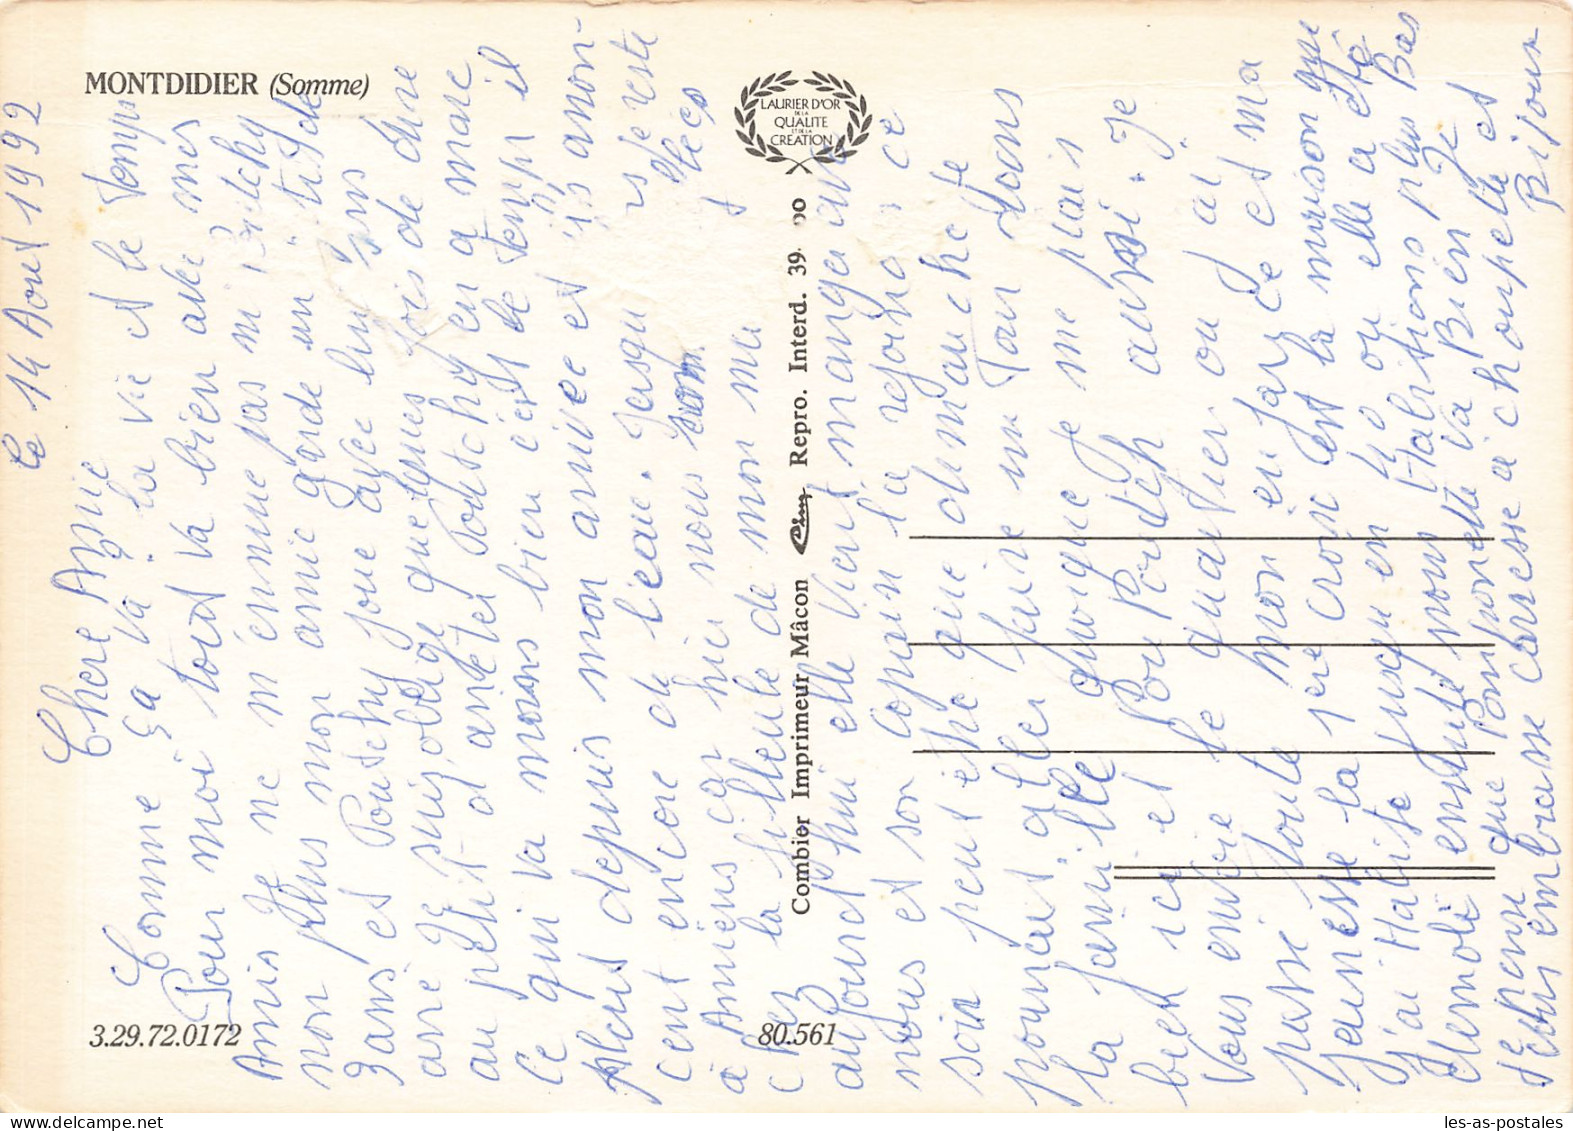 MONTDIDIER (Somme)
LAURIER D'OR
DE LA
QUALITE
ET DE LA
CREATION
3.29.72.0172
80.561
Combier Imprimeur Mâcon
Repro. Interd. 39
Le 14 Aout 1992
Chere Annie
Comme ça va la vie et le Temps
Pour moi tout va bien avec mes
Amis Je ne m'ennuie pas ni Poutchy
non plus mon amie garde un
3 ans et Poutchy joue avec lui sans
arrê Je suis obligé quelques fois de dire
au petit d'arrêter Poutchy en a mare
ce qui va moins bien c'est le Temps il
pleut depuis mon arrivée et ils annon-
cent encore de l'eau. Jusqu
à Amiens car hier nous
chez la filleule de mon ma
aujourd'hui elle vient manger avec
nous et son copain la rejoins ce
soir peut être que dimanche
pourrait aller faire un Tour dans
la famille quoique Je me plais
bien ici et Poupoutch aussi. Je
Vous envie le quartier ou j'ai
passé toute mon enfance et ma
Jeunesse la 1ere croix est la maison que
J'ai Habité Jusqu'en 40 ou elle a été
démoli ensuite nous Habitions plus Bas
Je pense que Pomponette va Bien Je
Vous embrasse caresse à choupette et
Bisoux
les-as-postales